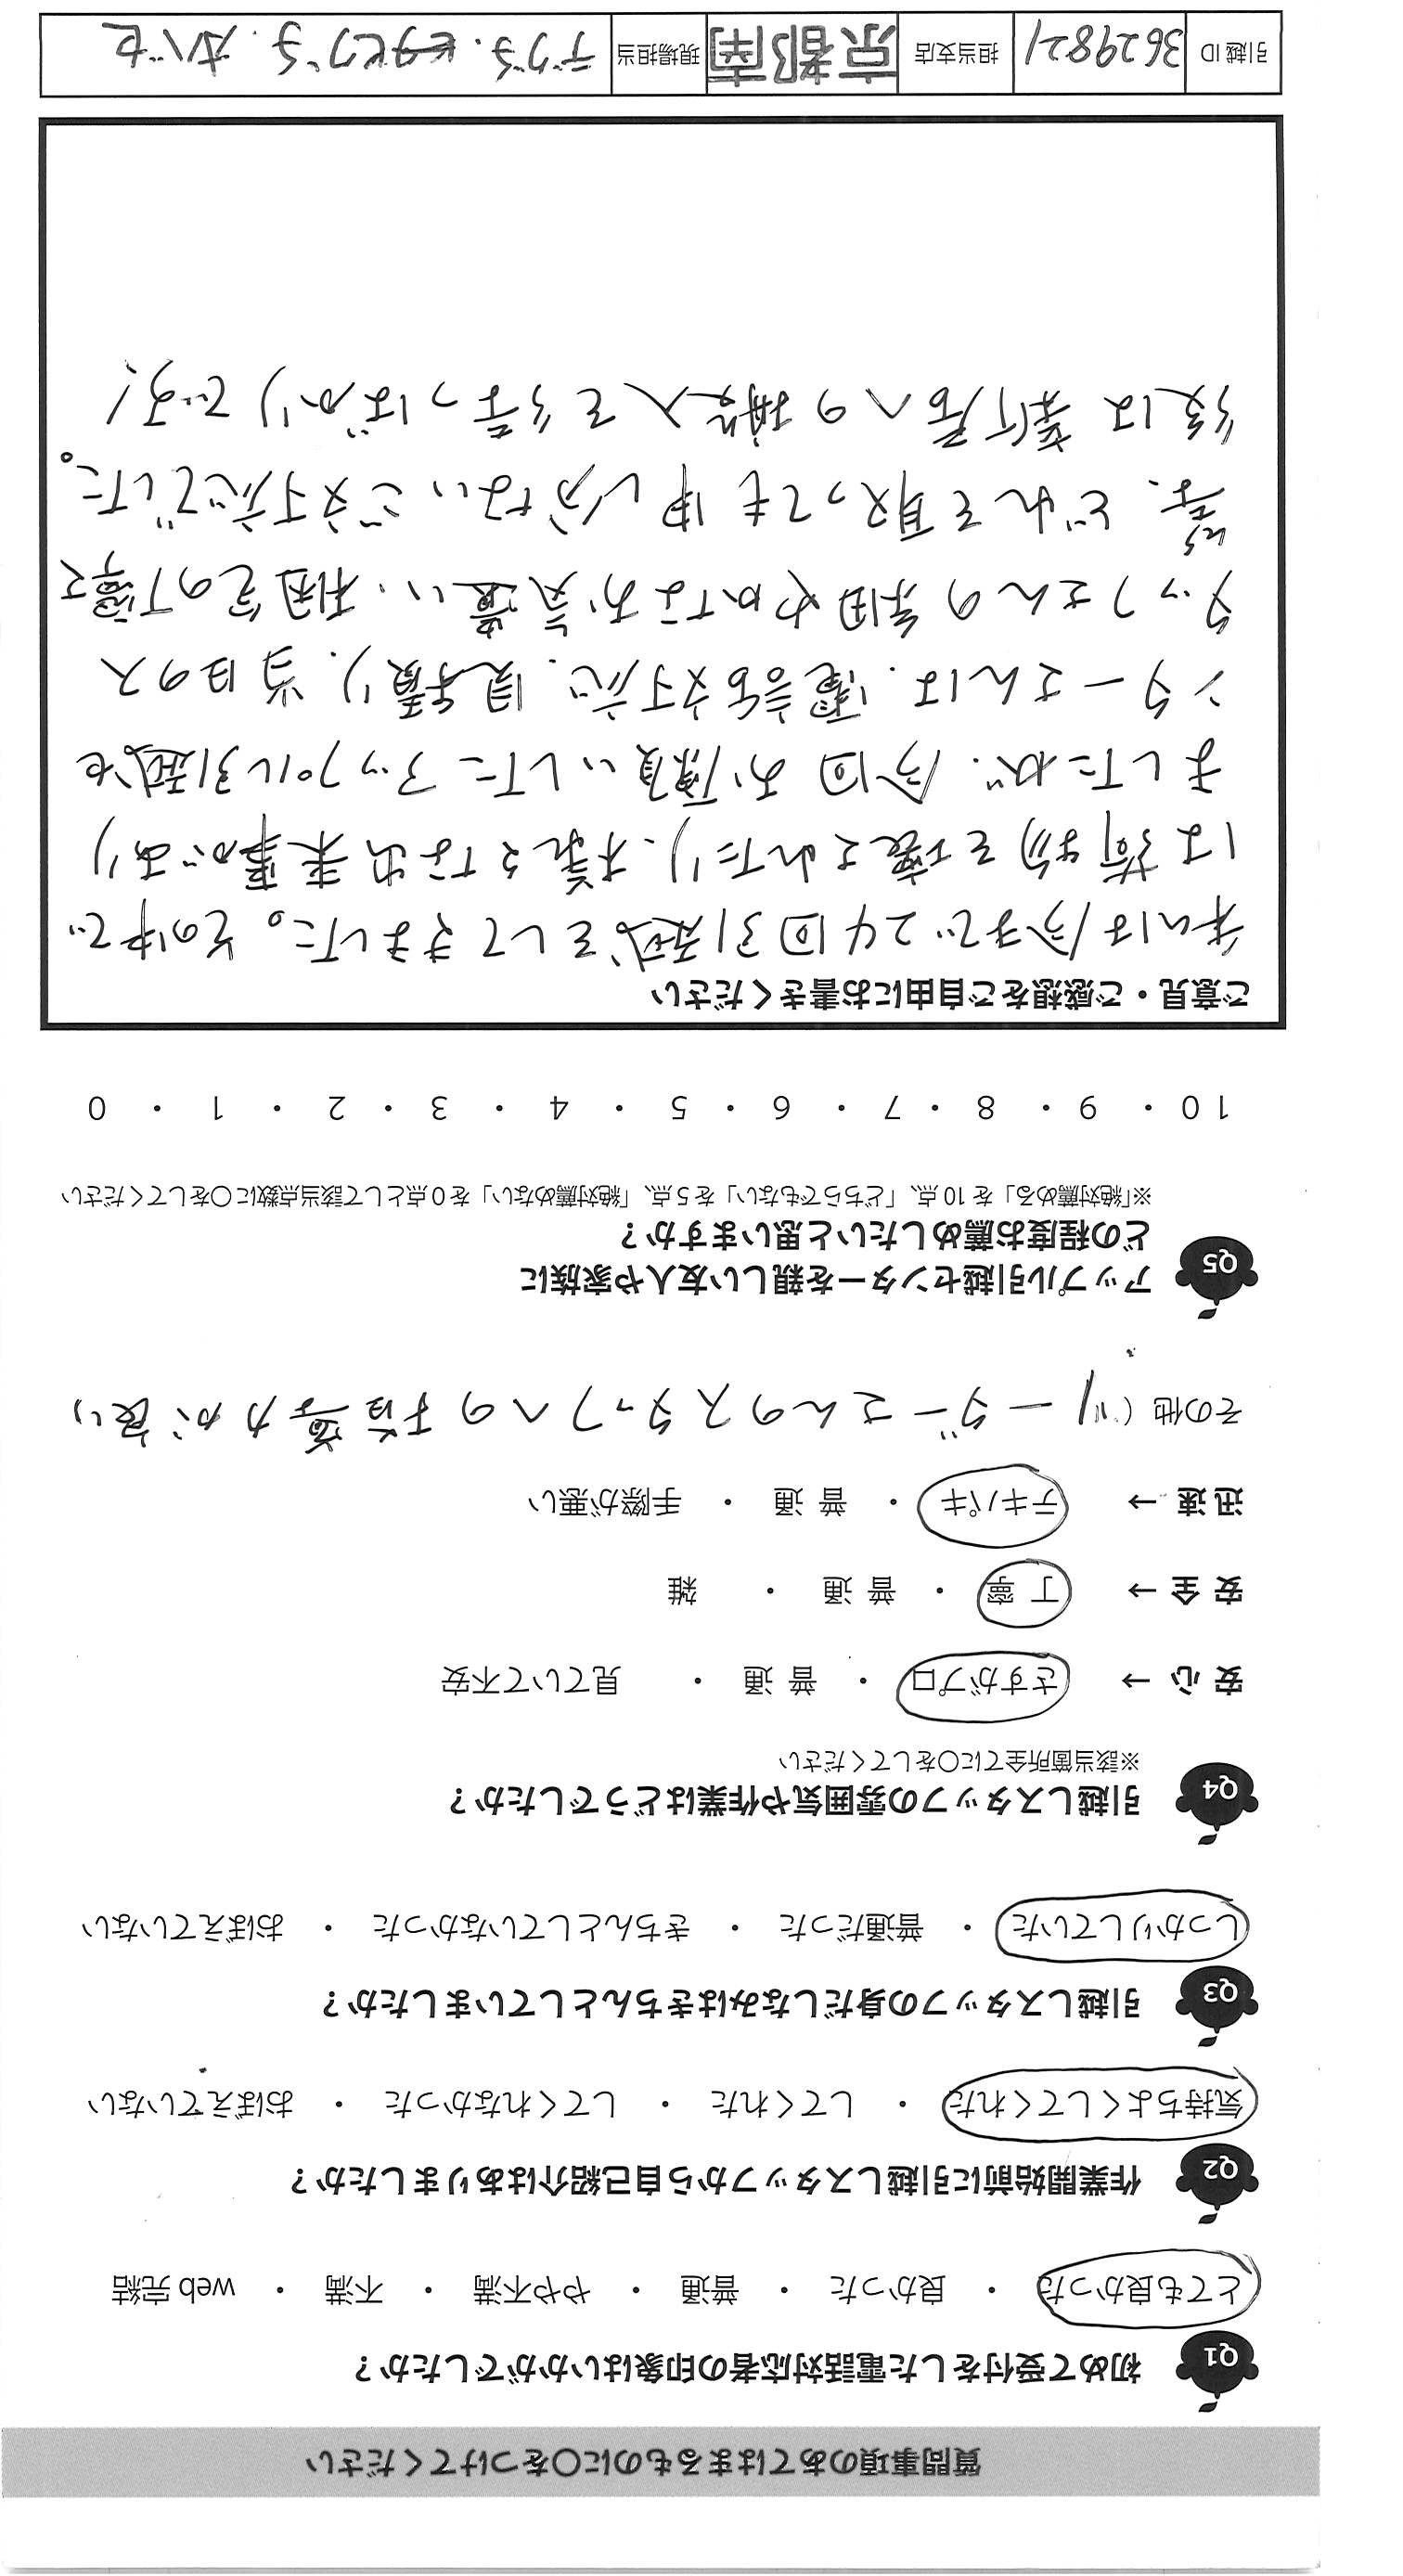 質問事項のあてはまるものに○をつけてください
Q1 初めて受付をした電話対応者の印象はいかがでしたか？
とても良かった ・ 良かった ・ 普通 ・ やや不満 ・ 不満 ・ web 完結
Q2 作業開始前に引越しスタッフから自己紹介はありましたか？
気持ちよくしてくれた ・ してくれた ・ してくれなかった ・ おぼえていない
Q3 引越しスタッフの身だしなみはきちんとしていましたか？
しっかりしていた ・ 普通だった ・ きちんとしていなかった ・ おぼえていない
Q4 引越しスタッフの雰囲気や作業はどうでしたか？
※該当箇所全てに○をしてください
安 心 → さすがプロ ・ 普 通 ・ 見ていて不安
安 全 → 丁 寧 ・ 普 通 ・ 雑
迅 速 → テキパキ ・ 普 通 ・ 手際が悪い
その他（リーダーさんのスタッフへの指導力が良い
Q5 アップル引越センターを親しい友人や家族に
どの程度お薦めしたいと思いますか？
※「絶対薦める」を 10 点、「どちらでもない」を 5 点、「絶対薦めない」を 0 点として該当点数に○をしてください
10 ・ 9 ・ 8 ・ 7 ・ 6 ・ 5 ・ 4 ・ 3 ・ 2 ・ 1 ・ 0
ご意見・ご感想をご自由にお書きください
私は今まで24回引越をしてきました。その中で
は荷物を壊されたり、様々な出来事があり
ましたが、今回お願いしたアップル引越セ
ンターさんは、電話対応、見積り、当日のス
タッフさんの細やかなお気遣い、梱包の丁寧さ
等、どれを取っても申し分ないご対応でした。
後は新居への搬入を待つばかりです！
引越 ID 3629821 担当支店 京都南 現場担当 デグチ・ヒグチ・オバセ